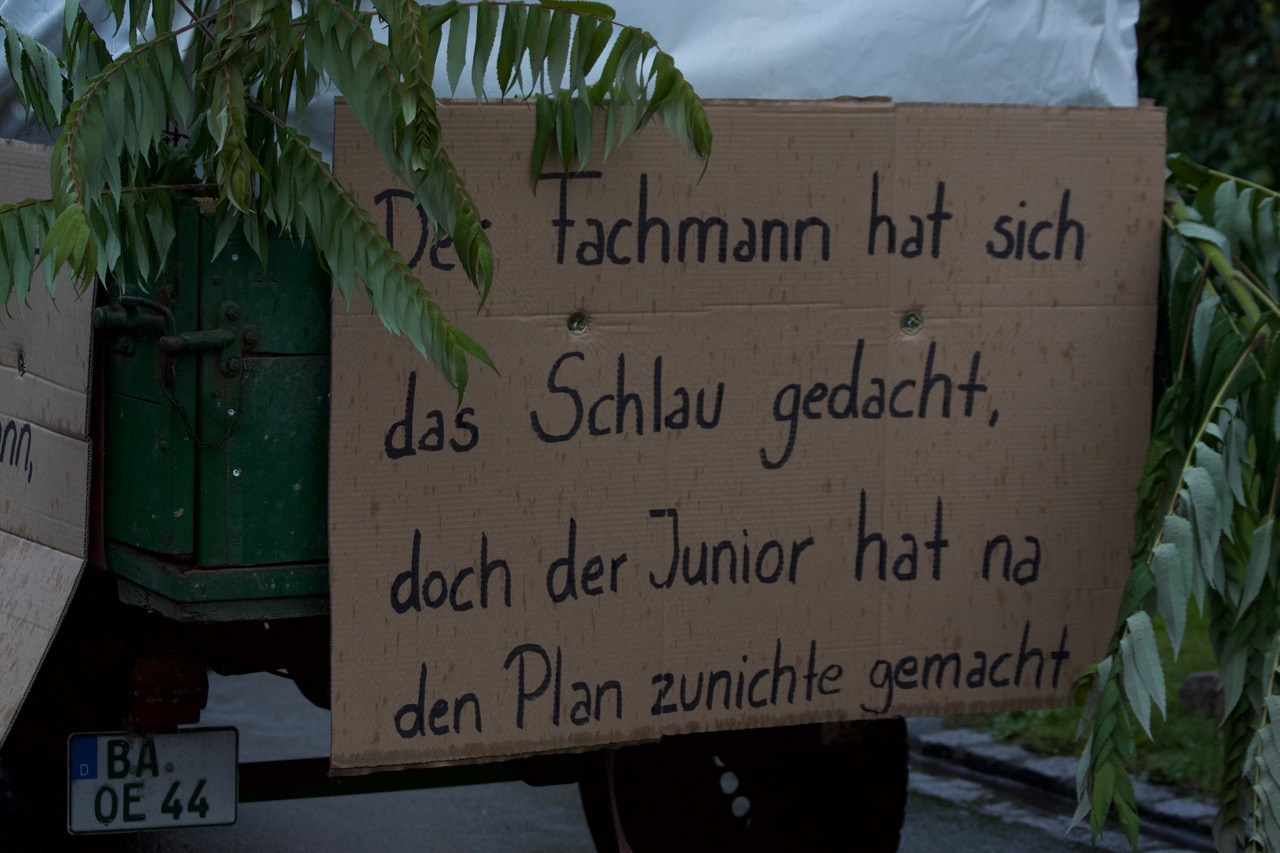 Der Fachmann hat sich
das Schlau gedacht,
doch der Junior hat na
den Plan zunichte gemacht
nn,
D
BA
OE 44